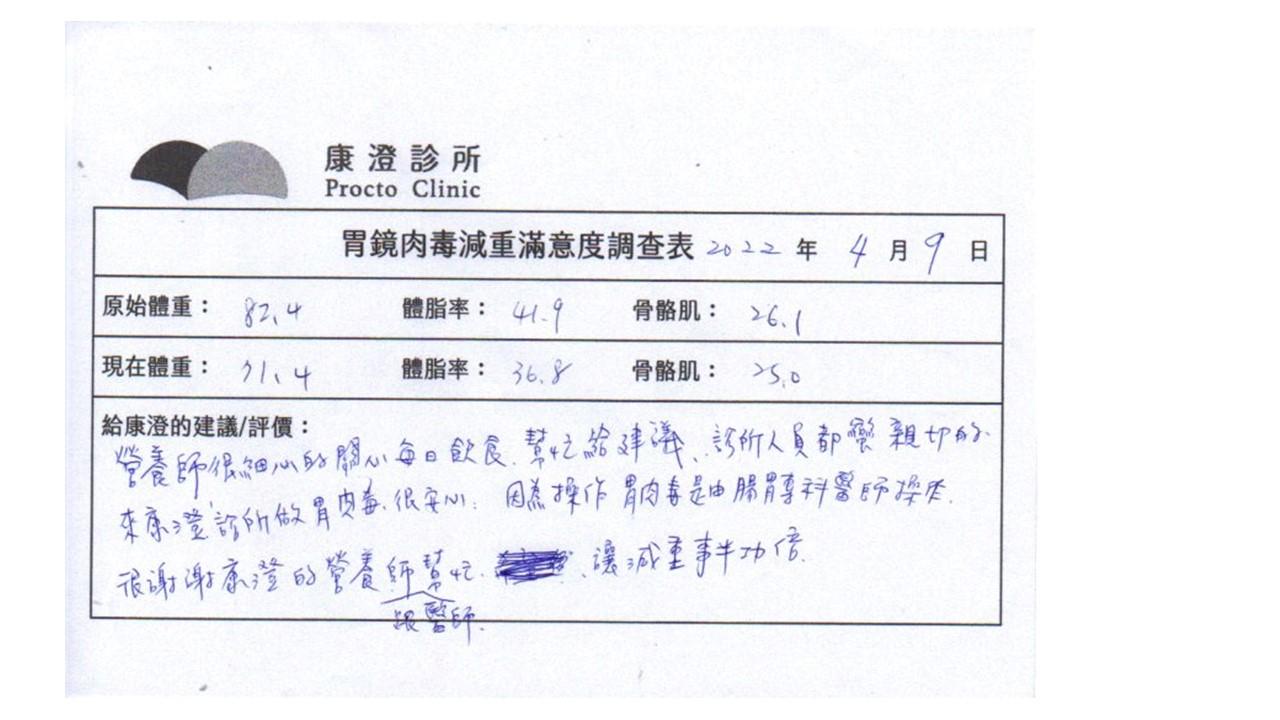 康澄診所
Procto Clinic
胃鏡肉毒減重滿意度調查表 2022 年 4 月 9 日
原始體重： 82.4 體脂率： 41.9 骨骼肌： 26.1
現在體重： 71.4 體脂率： 36.8 骨骼肌： 25.0
給康澄的建議/評價：
營養師很細心的關心每日飲食、幫忙給建議、診所人員都蠻親切的.
來康澄診所做胃肉毒、很安心. 因為操作胃肉毒是由腸胃專科醫師操作.
很謝謝康澄的營養師幫忙. 讓減重事半功倍.
跟醫師.